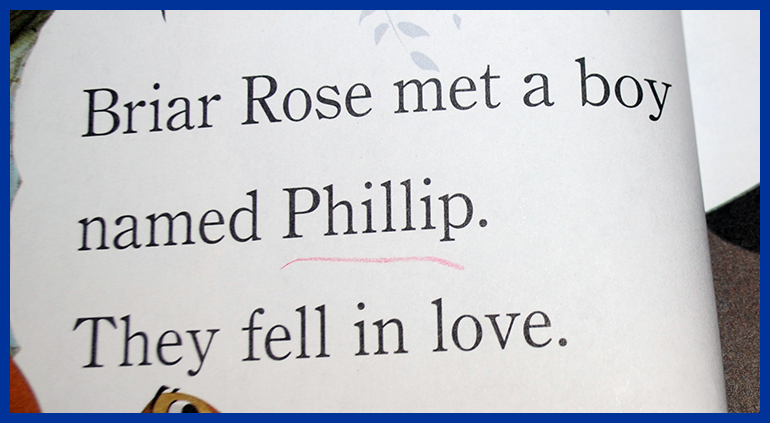 Briar Rose met a boy
named Phillip.
They fell in love.